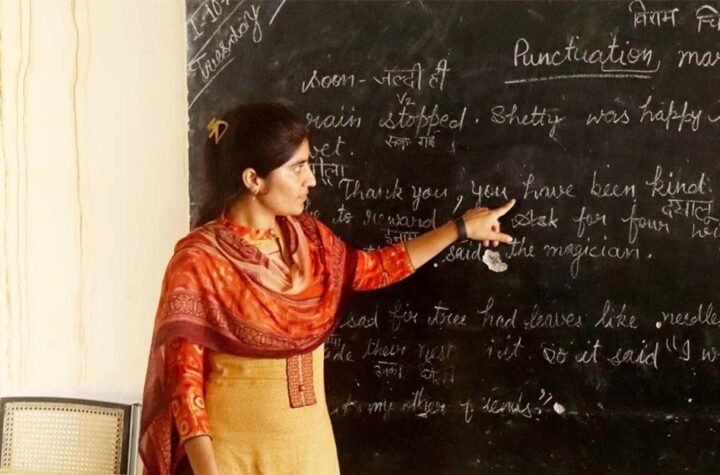 I-10
Tuesday
विराम चि
Punctuation mar
soon - जल्दी ही
V2
rain stopped. Shetty was happy
रुक गई
wet.
"Thank you, you have been kind.
दयालु
to reward ask for four
इनाम
said the magician.
sad fir tree had leaves like needle
their nest in it. So it said "I w
to my other friends".